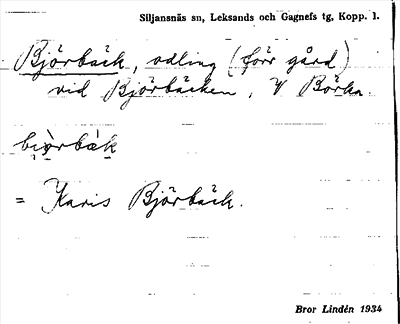 Siljansnäs sn, Leksands och Gagnefs tg, Kopp. l.
Björbäck, odling (förr gård)
vid Björbäcken, V Börka.
bjö̀rbäk
= Karis Björbäck.
Bror Lindén 1934